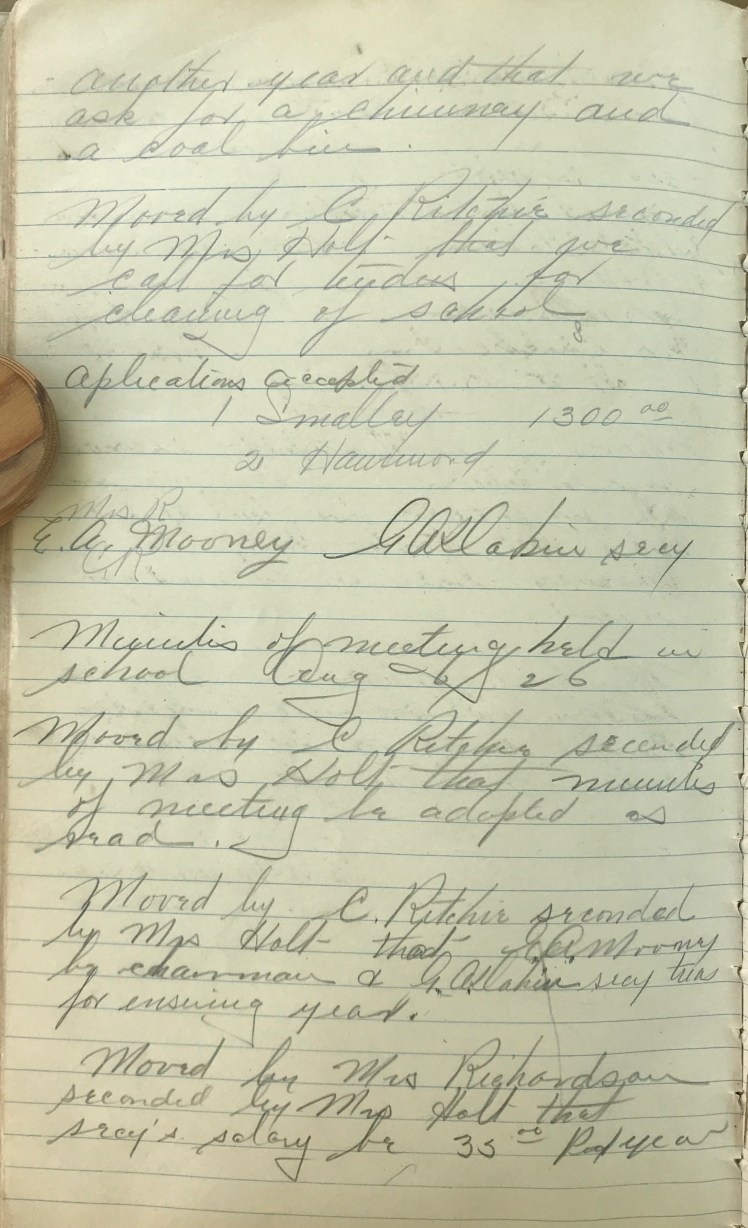 another year and that we
ask for a chimnay and
a coal bin.
Moved by C Ritchie seconded
by Mrs Holt that we
call for tenders for
cleaning of school
Aplications accepted
1 Smalley 1300 00
2 Hammond
Mrs. R
E. A. Mooney G A Lakin secy
C.R.
Minutes of meeting held in
school Aug 6/26
Moved by C Ritchie seconded
by Mrs Holt that minutes
of meeting be adopted as
read.
Moved by C. Ritchie seconded
by Mrs Holt that E.A. Mooney
by chairman & G. A. Lakin secy tres
for ensuing year.
Moved by Mrs Richardson
seconded by Mrs Holt that
secy's salary be 35 00 per year